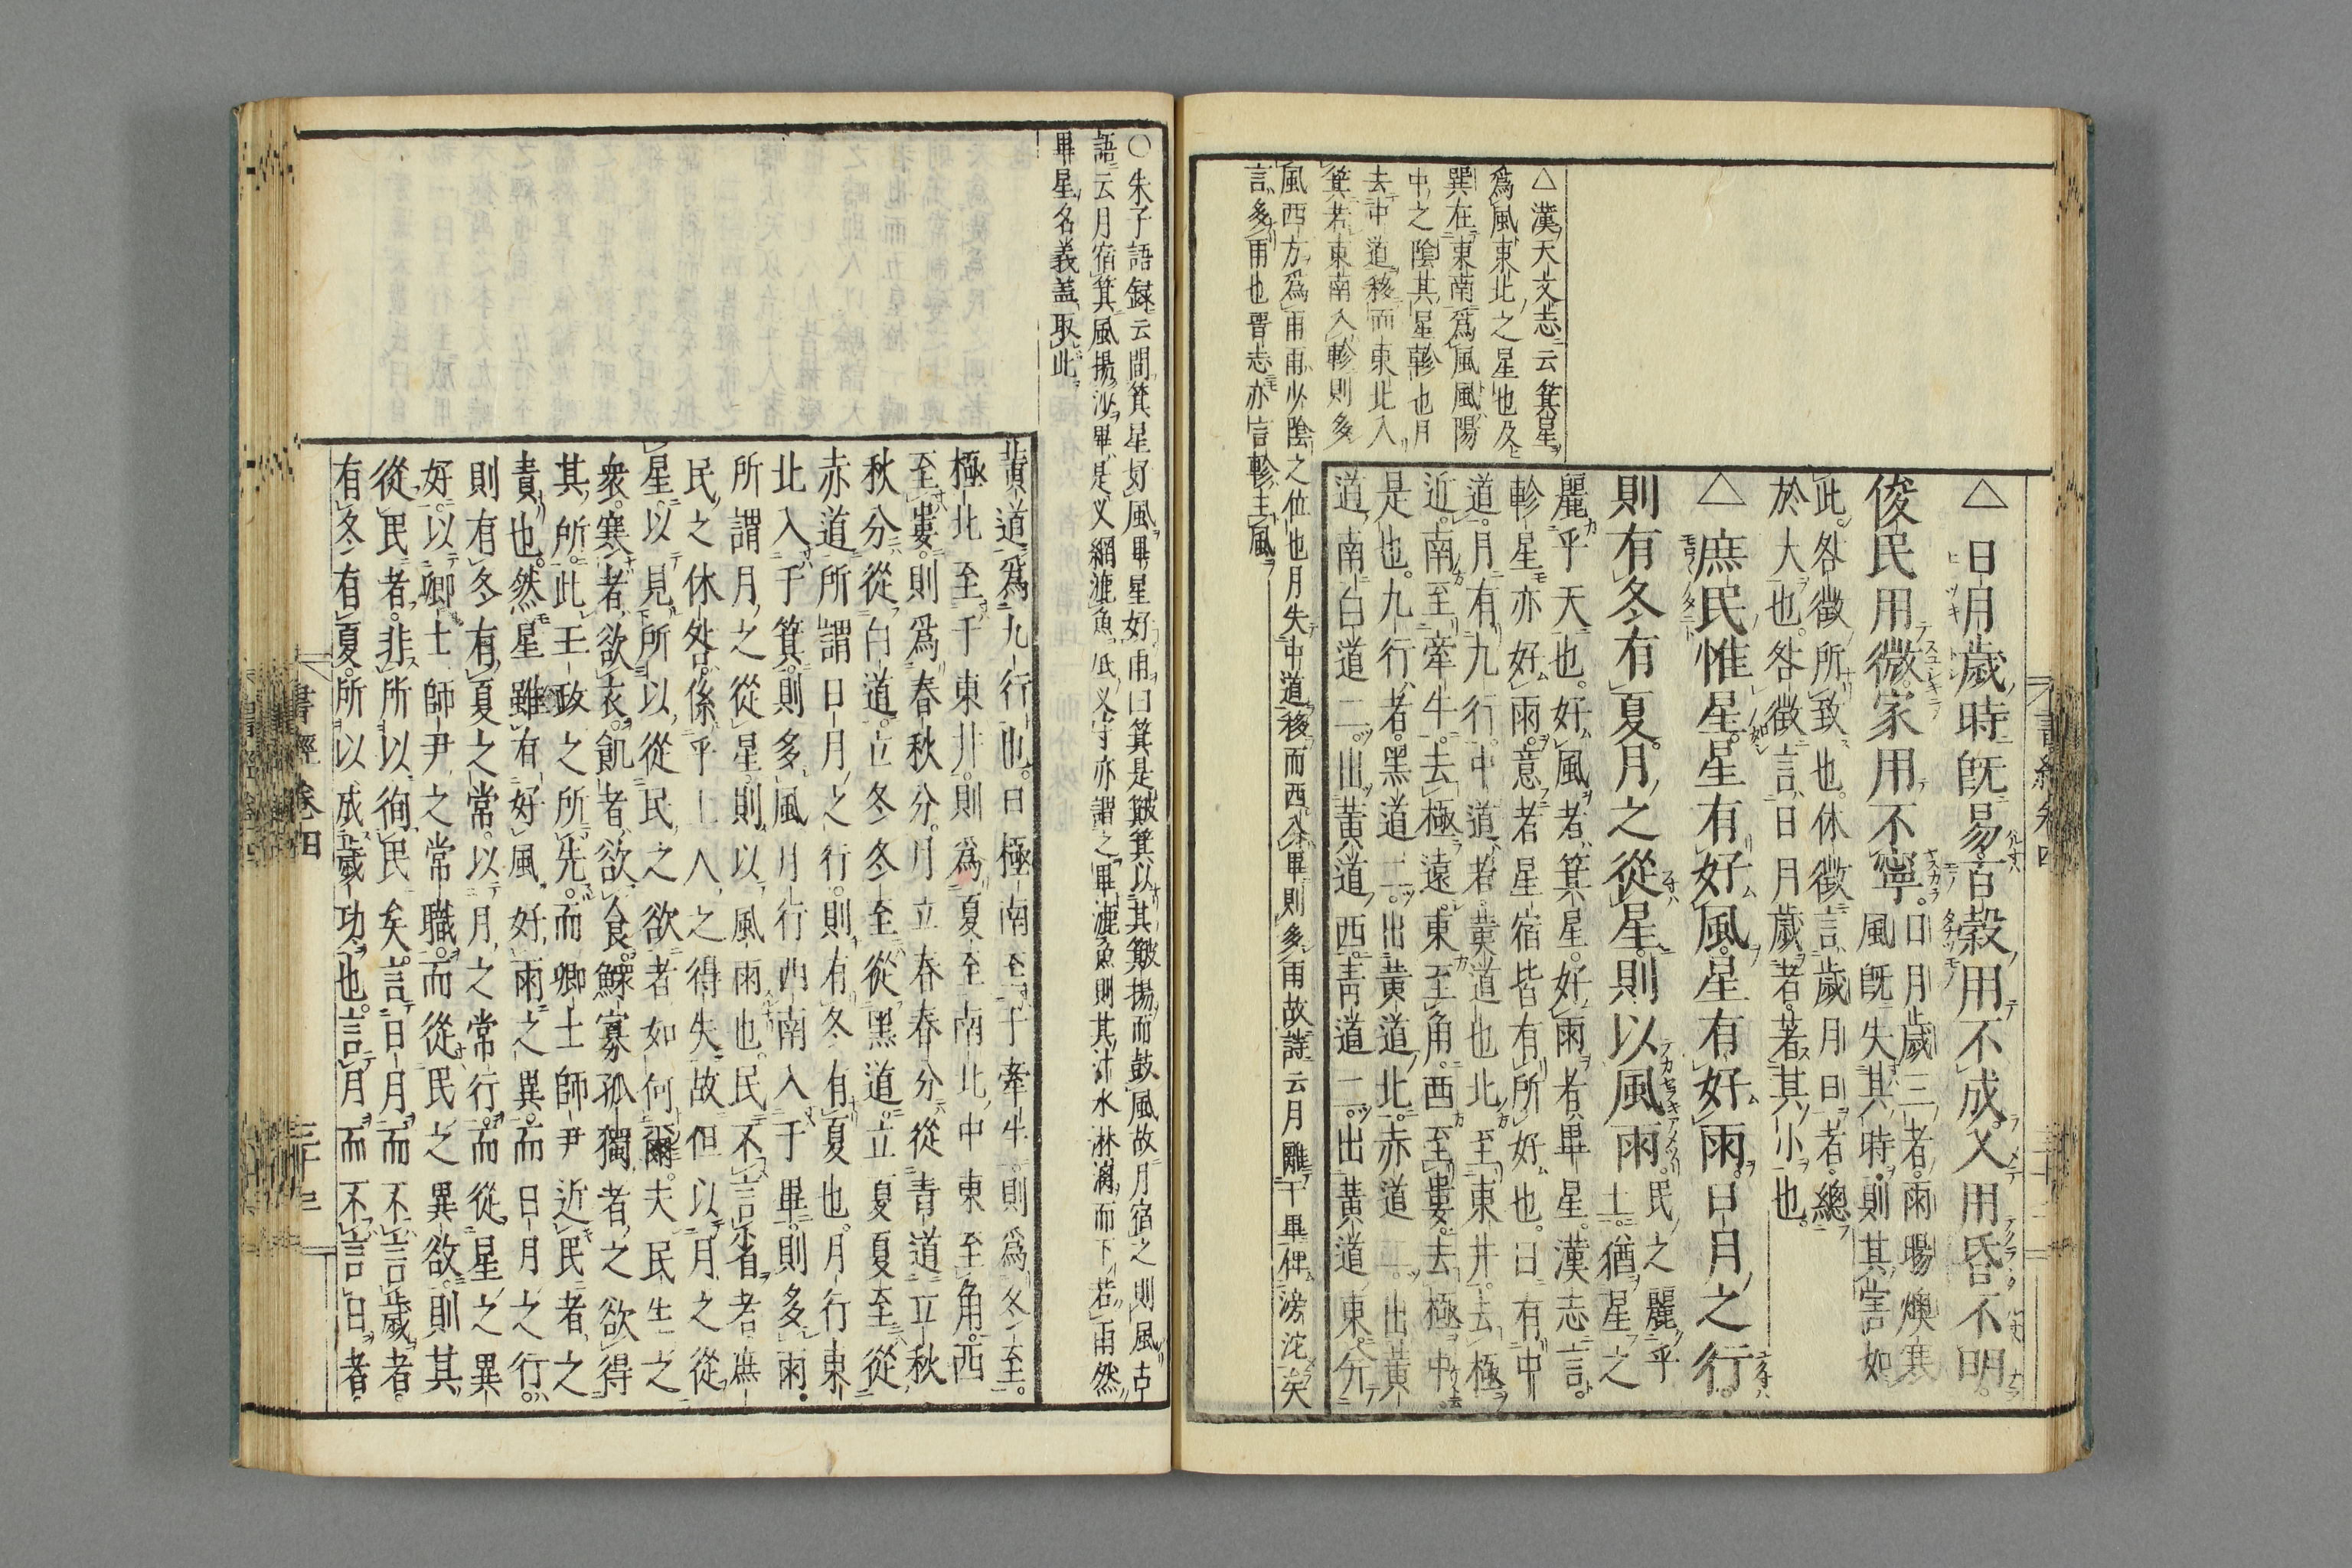 △日月歲時旣易百穀用不成乂用昏不明
俊民用微家用不寧日月歲三者雨暘燠寒
風旣失其時則其害如
此咎徵所致也休徵言歲月日者總
於大也咎徵言日月歲者著其小也
△庶民惟星星有好風星有好雨日月之行
則有冬有夏月之從星則以風雨民之麗乎
土猶星之
麗乎天也好風者箕星好雨者畢星漢志言
軫星亦好雨意者星宿皆有所好也日有中
道月有九行中道者黃道也北至東井去極
近南至牽牛去極遠東至角西至婁去極中
是也九行者黑道二出黃道北赤道二出黃
道南白道二出黃道西靑道二出黃道東幷
△漢天文志云箕星
爲風東北之星也及
巽在東南爲風風陽
中之陰其星軫也月
去中道移而東北入
箕若東南入軫則多
風西方爲雨雨少陰之位也月失中道移而西入畢則多雨故詩云月離于畢俾滂沱矣
言多雨也晉志亦言軫主風
書經卷四
○朱子語錄云問箕星好風畢星好雨曰箕是簸箕以其簸揚而鼓風故月宿之則風古
語云月宿箕風揚沙畢是乂網漉魚底乂字亦謂之畢漉魚則其汁水淋漓而下若雨然
畢星名義蓋取此
黃道爲九行也日極南至于牽牛則爲冬至
極北至于東井則爲夏至南北中東至角西
至婁則爲春秋分月立春春分從青道立秋
秋分從白道立冬冬至從黑道立夏夏至從
赤道所謂日月之行則有冬有夏也月行東
北入于箕則多風月行西南入于畢則多雨
所謂月之從星則以風雨也民不言省者庶
民之休咎係乎上人之得失故但以月之從
星以見所以從民之欲者如何爾夫民生之
衆寒者欲衣飢者欲食鰥寡孤獨者之欲得
其所此王政之所先而卿士師尹近民者之
責也然星雖有好風好雨之異而日月之行
則有冬有夏之常以月之常行而從星之異
好以卿士師尹之常職而從民之異欲則其
從民者非所以徇民矣言日月而不言歲者
有冬有夏所以成歲功也言月而不言日者
書經卷四